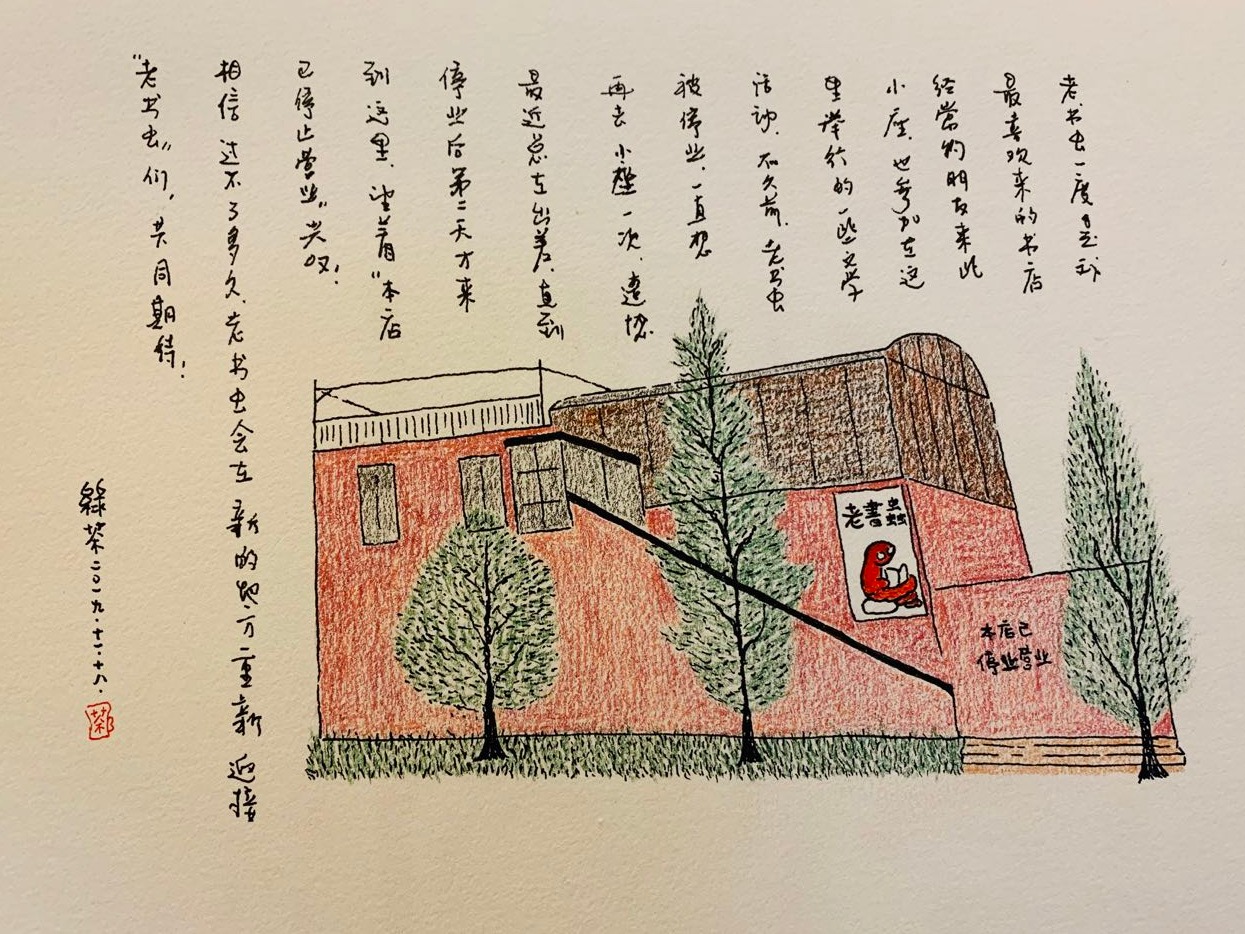 老书虫一度是我
最喜欢来的书店
经常约朋友来此
小座,也参加在这
里举行的一些文学
活动。不久前,老书虫
被停业,一直想
再去小座一次,遗憾
最近总在出差,直到
停业后第二天才来
到这里,望着“本店
已停止营业”兴叹!
相信过不了多久,老书虫会在新的地方重新迎接
“老书虫”们,共同期待!
綠茶 二〇一九.十一.十八.
老書蟲
本店已
停业营业